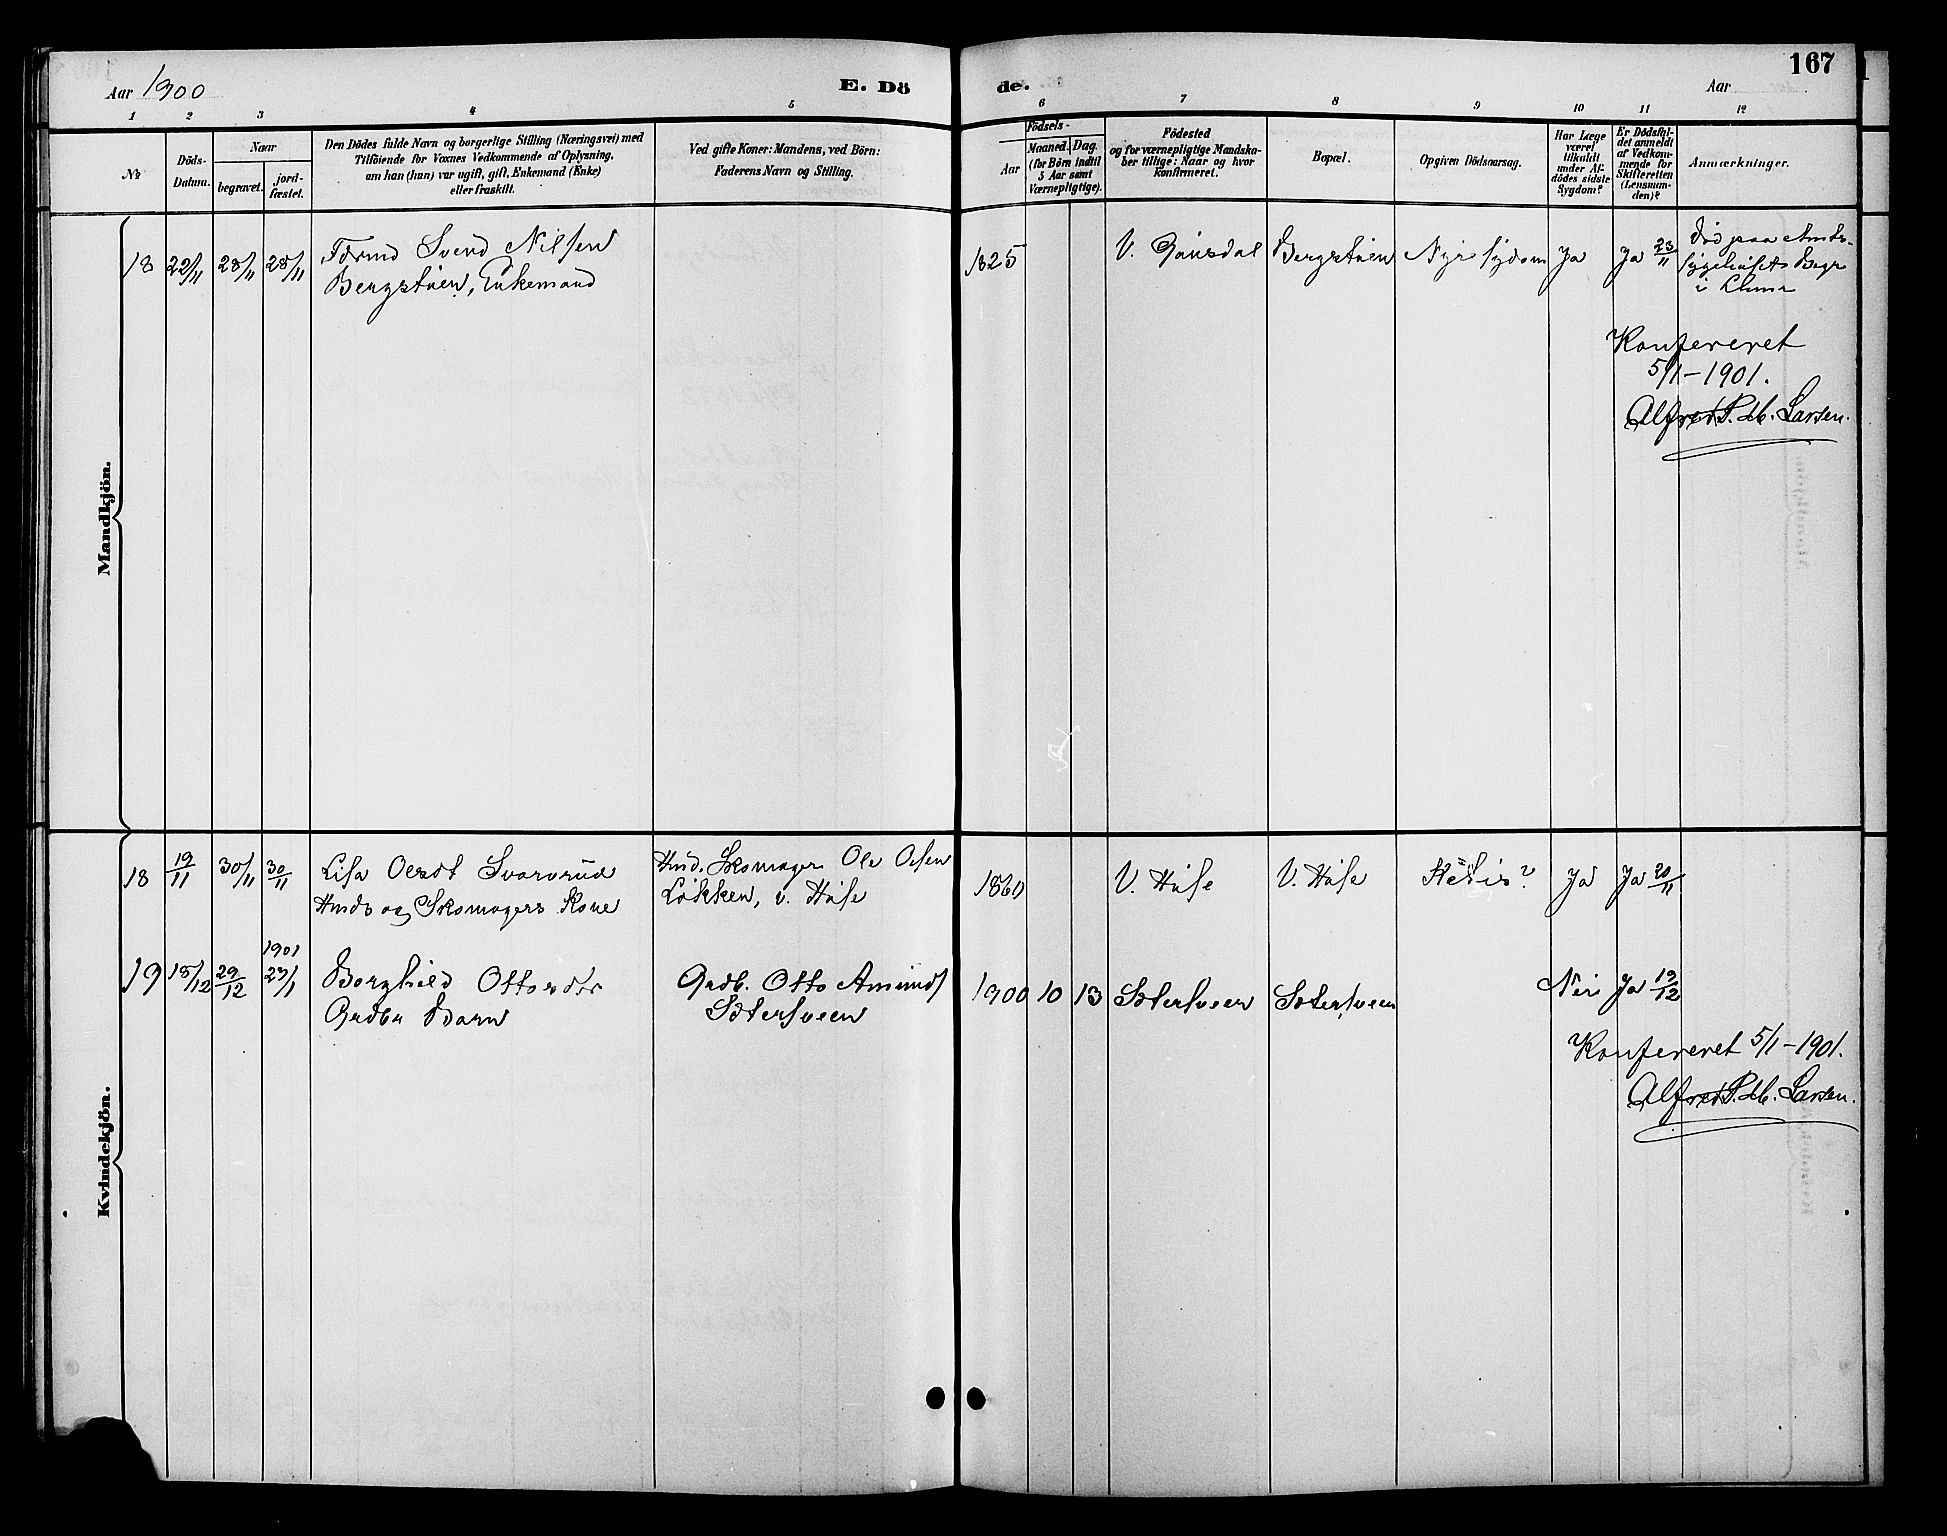 Aar 1900
E. Dö
de.
167
Aar
1 2 3 4 5 6 7 8 9 10 11 12
No
Döds-
Datum.
Naar
begravet.
jord-
fæstet.
Den Dödes fulde Navn og borgerlige Stilling (Næringsvei) med
Tilföiende for Voxnes Vedkommende af Oplysning,
om han (hun) var ugift, gift, Enkemand (Enke)
eller fraskilt.
Ved gifte Koner: Mandens, ved Börn:
Faderens Navn og Stilling.
Födsels-
Aar
Maaned. Dag.
(for Börn indtil
5 Aar samt
Værnepligtige).
Födested
og for værnepligtige Mandska-
ber tillige: Naar og hvor
konfirmeret.
Bopæl.
Opgiven Dödsaarsag.
Har Læge
været
tilkaldt
under Af-
dödes sidste
Sygdom?
Er Dödsfal-
det anmeldt
af Vedkom-
mende for
Skifteretten
(Lensman-
den)?
Anmærkninger.
Mandkjön.
18 22/11 28/11 28/11 Svend Nilsen
Bergstuen, Enkemand
1825 V. Gausdal Bergstuen Nyresygdom Ja Ja 23/11
Död paa Amts-
sygehuset Begr
i
Konfereret
5/1-1901.
Alfred P. M. Larsen.
Kvindekjön.
18 19/11 30/11 30/11 Lisa Olsdt Svarverud
Husm og Skomagers Kone
Husm. Skomager Ole Olsen
Løkken, v.
V. V. ? Ja Ja 20/11
19 18/12 29/12 1901 23/1 Borghild Ottosdtr
Grdbr Barn
Grdb. Otto Amunds
Sætersveen
1900 10 13 Sætersveen Sætersveen Nei Ja 19/12
Konfereret 5/1-1901.
Alfred P. M. Larsen.